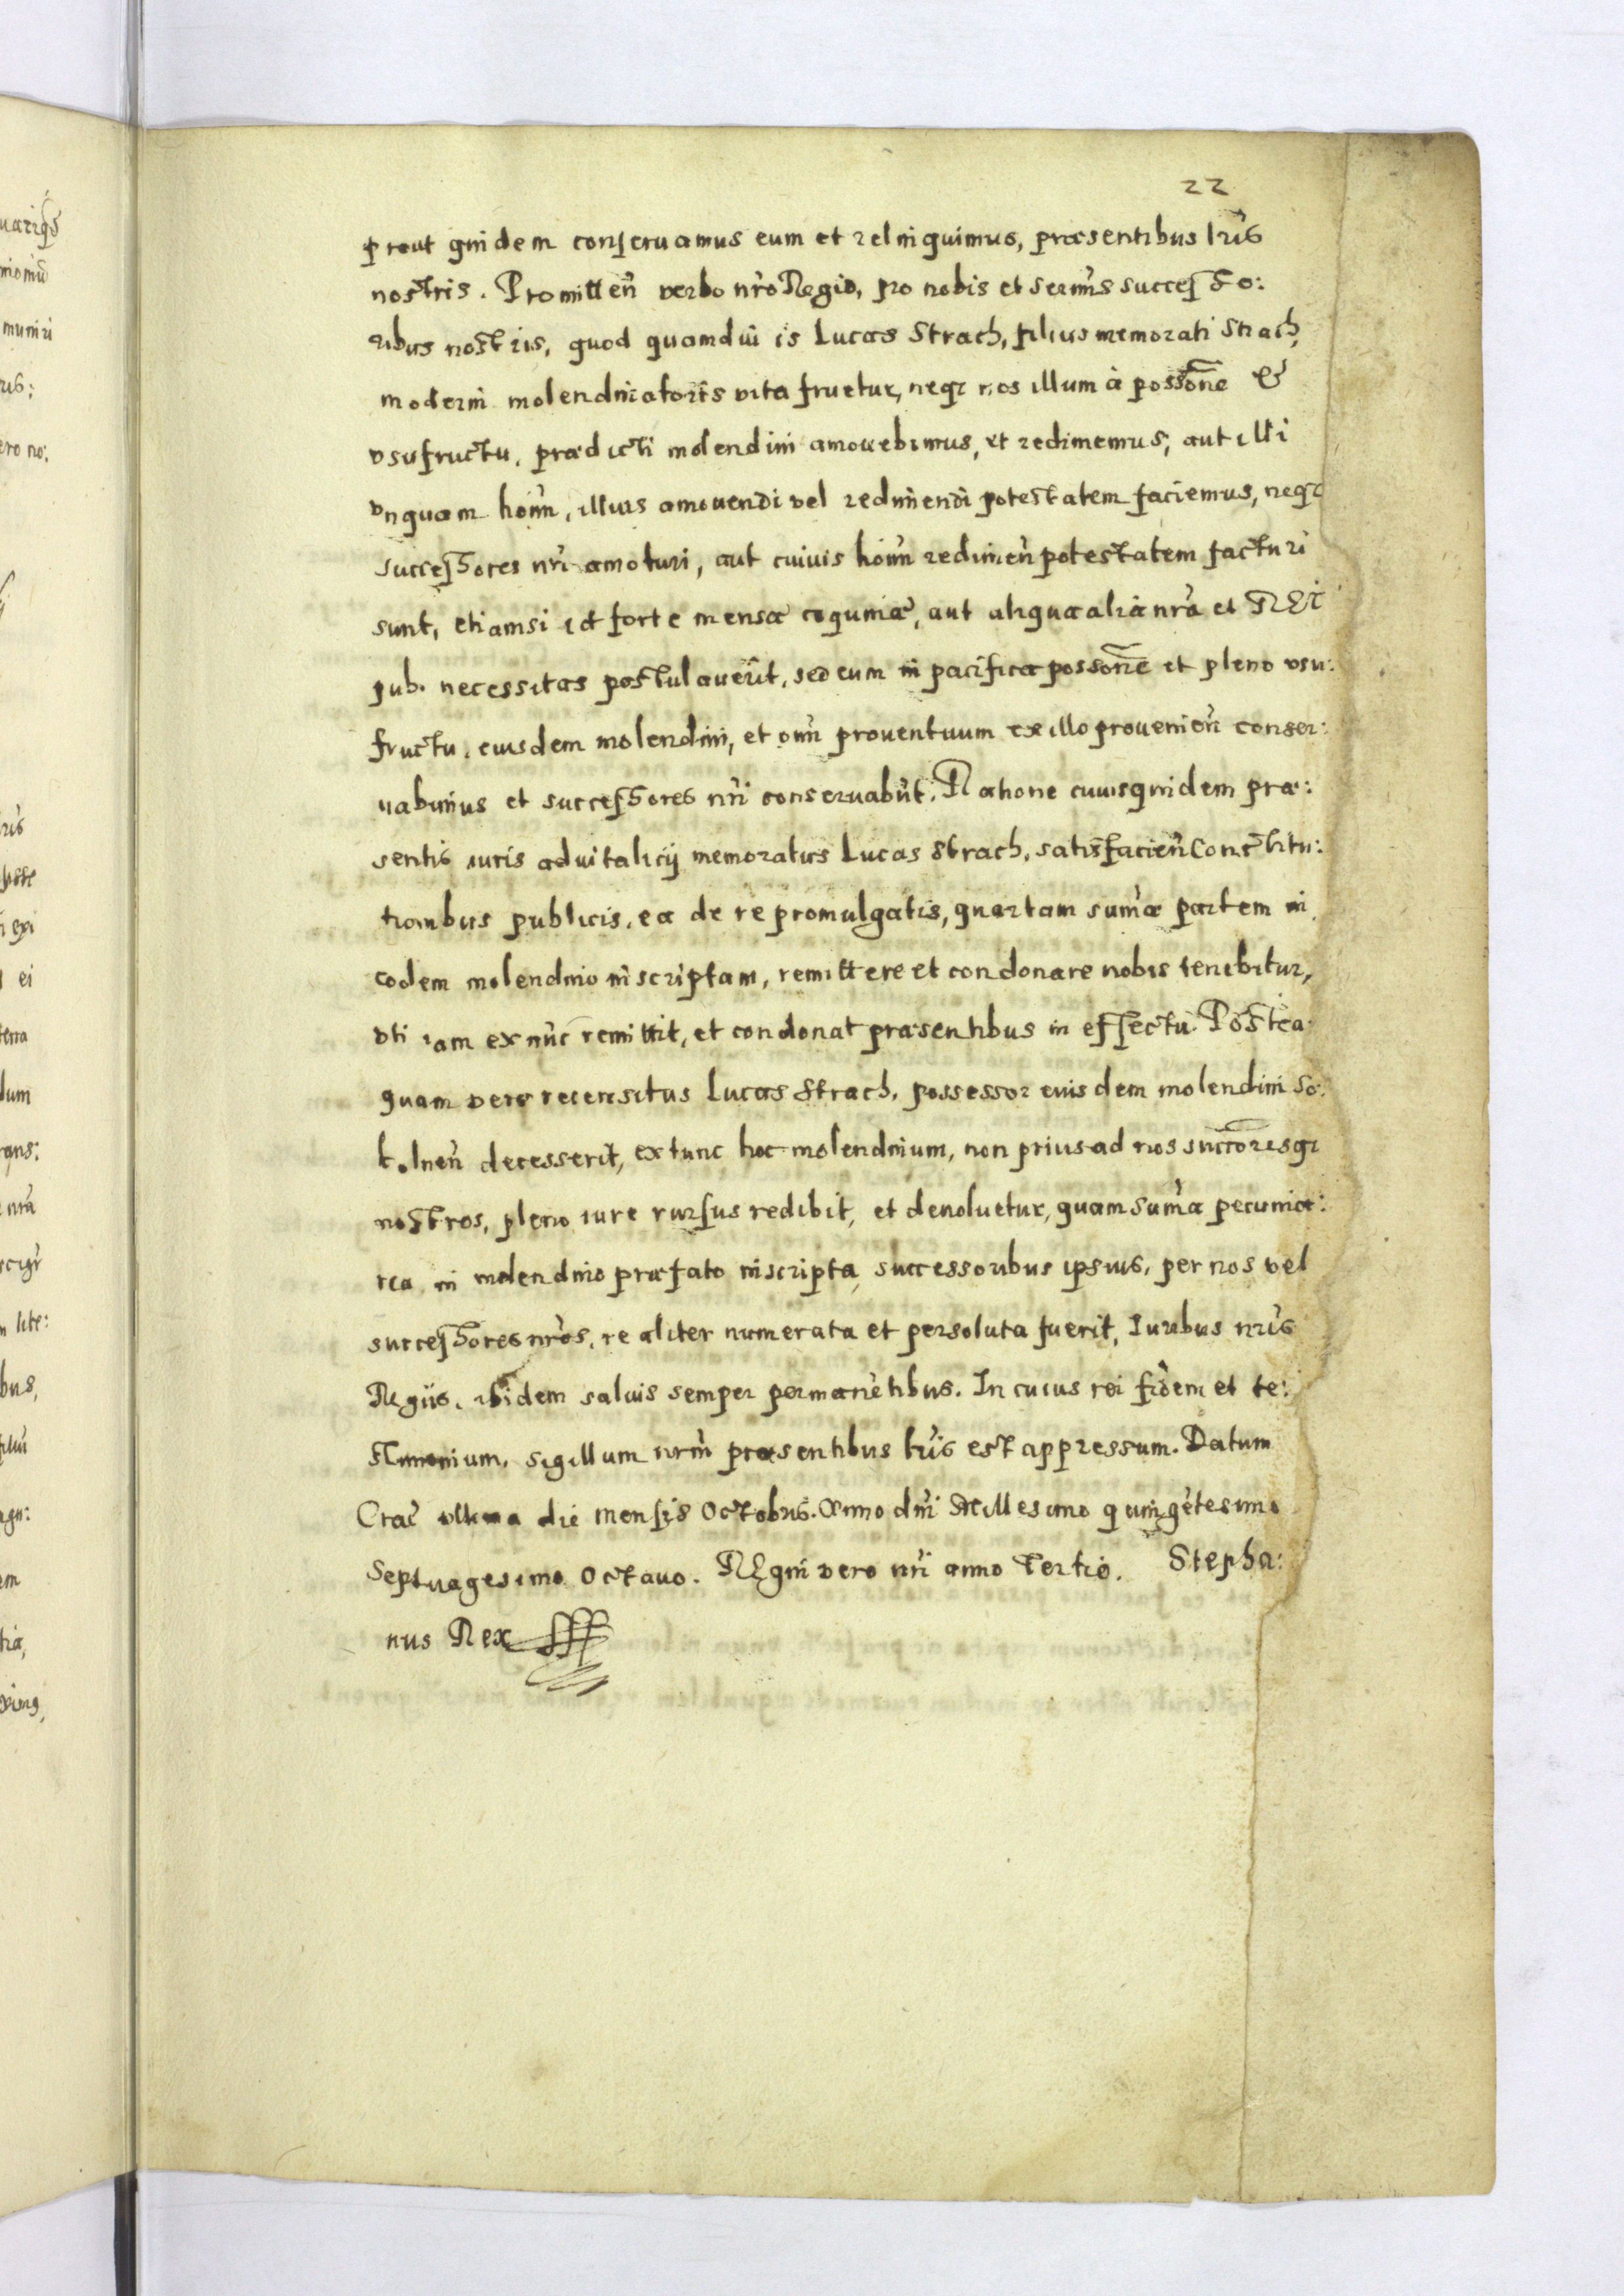 22
prout quidem conseruamus eum et relinquimus, præsentibus lr̃is
nostris. Promitteñ verbo nr̃o Regio, pro nobis et serm̃is successo:
ribus nostris, quod quamdiu is Lucas Strach, filius memorati Strach,
moderni molendinatoris vita fruetur, neqꝫ nos illum à posso͞ne &
vsufructu, prædicti molendini amouebimus, et redimemus, aut illi
vnquam hoĩm, illius amouendi vel redimendi potestatem faciemus, neqꝫ
successores nr̃i amoturi, aut cuiuis hoĩm redimeñ potestatem facturi
sunt, etiamsi id forte mensæ coquinæ, aut aliqua alia nr̃a et REI
pub. necessitas postulauerit, sed eum in pacifica posso͞ne et pleno vsu:
fructu, eiusdem molendini, et oĩm prouentuum ex illo prouenieñ conser:
uabimus et successores nr̃i conseruabũt. Ratione cuius quidem præ:
sentis iuris aduitalicij memoratus Lucas Strach, satisfacieñ Constitu:
tionibus publicis, ea de re promulgatis, quartam sum̃æ partem in
eodem molendino inscriptam, remittere et condonare nobis tenebitur,
vti iam ex nũc remittit, et condonat præsentibus in effectu. Postea
quam vero recensitus Lucas Strach, possessor eiusdem molendini So:
kolneñ decesserit, extunc hoc molendinum, non prius ad nos succ͞oresqꝫ
nostros, pleno iure rursus redibit, et deuoluetur, quam sum̃a pecunia:
ria, in molendino præfato inscripta, successoribus ipsius, per nos vel
successores nr̃os, realiter numerata et persoluta fuerit, Iuribus nr̃is
Regiis, ibidem saluis semper permanẽtibus. In cuius rei fidem et te:
stimonium, sigillum nrm̃ præsentibus lr̃is est appressum. Datum
Crac̃ vltima die mensis Octobris. Anno dñi Millesimo quingẽtesimo
Septuagesimo Octauo. REgni vero nr̃i anno Tertio. Stepha:
nus Rex